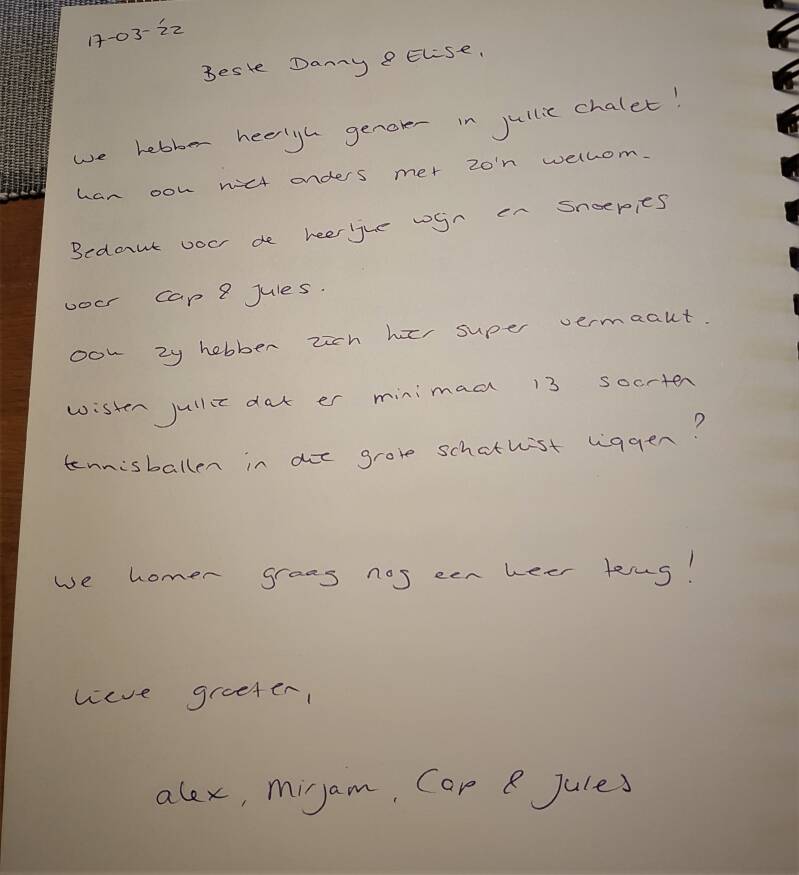 17-03-'22
Beste Danny & Elise,
we hebben heerlijk genoten in jullie chalet!
kan ook niet anders met zo'n welkom.
Bedankt voor de heerlijke wijn en snoepjes
voor Cap & Jules.
ook zij hebben zich hier super vermaakt.
wisten jullie dat er minimaal 13 soorten
tennisballen in die grote schatkist liggen?
we komen graag nog een keer terug!
lieve groeten,
alex, Mirjam, Cap & Jules